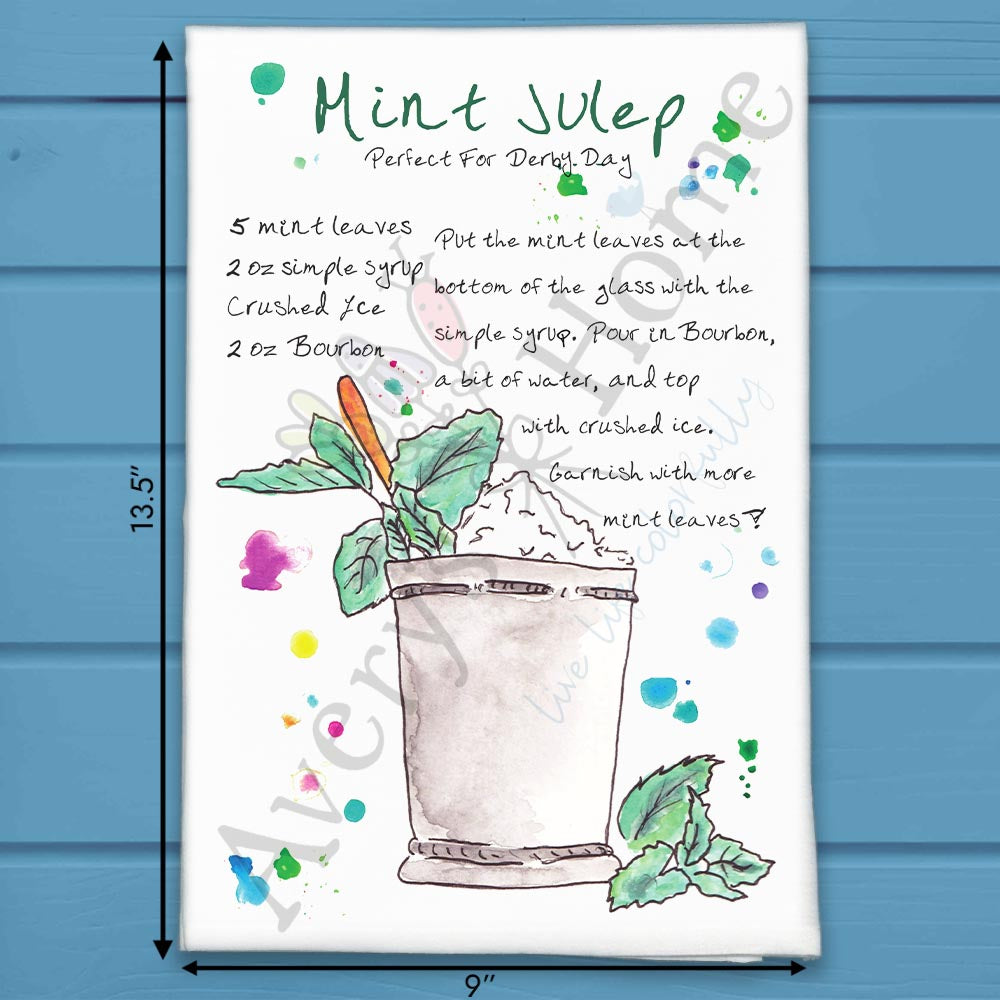 Mint Julep
Perfect For Derby Day
5 mint leaves
2 oz simple syrup
Crushed Ice
2 oz Bourbon
Put the mint leaves at the
bottom of the glass with the
simple syrup. Pour in Bourbon,
a bit of water, and top
with crushed ice.
Garnish with more
mint leaves!
Avery's Home
live life colorfully
13.5"
9"